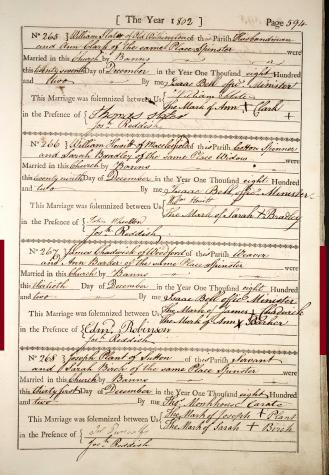 [ The Year 1802 ] Page 594
No 265 William Slater of Old Withington of this Parish Husbandman
and Ann Clark of the same Place Spinster were
Married in this Church by Banns
this twenty seventh Day of December in the Year One Thousand eight Hundred
and two By me Isaac Bell offic. Minister
This Marriage was solemnized between Us William Slater
The Mark of Ann + Clark
in the Presence of Thomas +
Jos. Reddish
No 266 William Hewitt of Macclesfield of this Parish Cotton Spinner
and Sarah Bradley of the same Place Widow were
Married in this Church by Banns
this twenty ninth Day of December in the Year One Thousand eight Hundred
and two By me Isaac Bell offic. Minister
This Marriage was solemnized between Us Wm Hewitt
The Mark of Sarah + Bradley
in the Presence of John
Jos. Reddish
No 267 James Chadwick of Woodford of this Parish Weaver
and Ann Barker of the same Place Spinster were
Married in this Church by Banns
this thirtieth Day of December in the Year One Thousand eight Hundred
and two By me Isaac Bell offic. Minister
This Marriage was solemnized between Us The Mark of James + Chadwick
The Mark of Ann + Barker
in the Presence of Edmd Robinson
Jos. Reddish
No 268 Joseph Plant of Sutton of this Parish Servant
and Sarah Birch of the same Place Spinster were
Married in this Church by Banns
this thirty first Day of December in the Year One Thousand eight Hundred
and two By me Thos Monkhouse Curate
This Marriage was solemnized between Us The Mark of Joseph + Plant
The Mark of Sarah + Birch
in the Presence of
Jos. Reddish